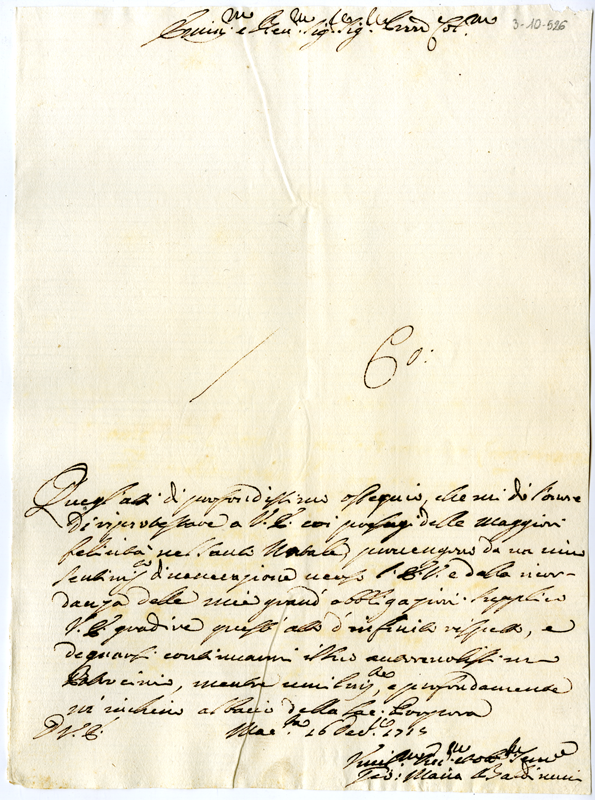 3-10-526
Em.mo e Rev.mo Sig.r Sig.r P.ron Col.mo
Co:
Quegl'atti di profondissimo ossequio, che mi dò l'onore
di riprotestare a V.E. coi presagj delle maggiori
felicità nel Santo Natale, provengono da un mio
sentim.to di venerazione verso l'E.V. e dalla ricor-
danza delle mie grandi obbligazioni. Supplico
V.E. gradire quest'atto d'infinito rispetto, e
degnarsi continuarmi il suo autorevolissimo
Patrocinio, mentre umilm.te, e profondamente
m'inchino al bacio della Sac: Porpora
D V.E.
Mac.ta 16 Dec. 1715
Maria